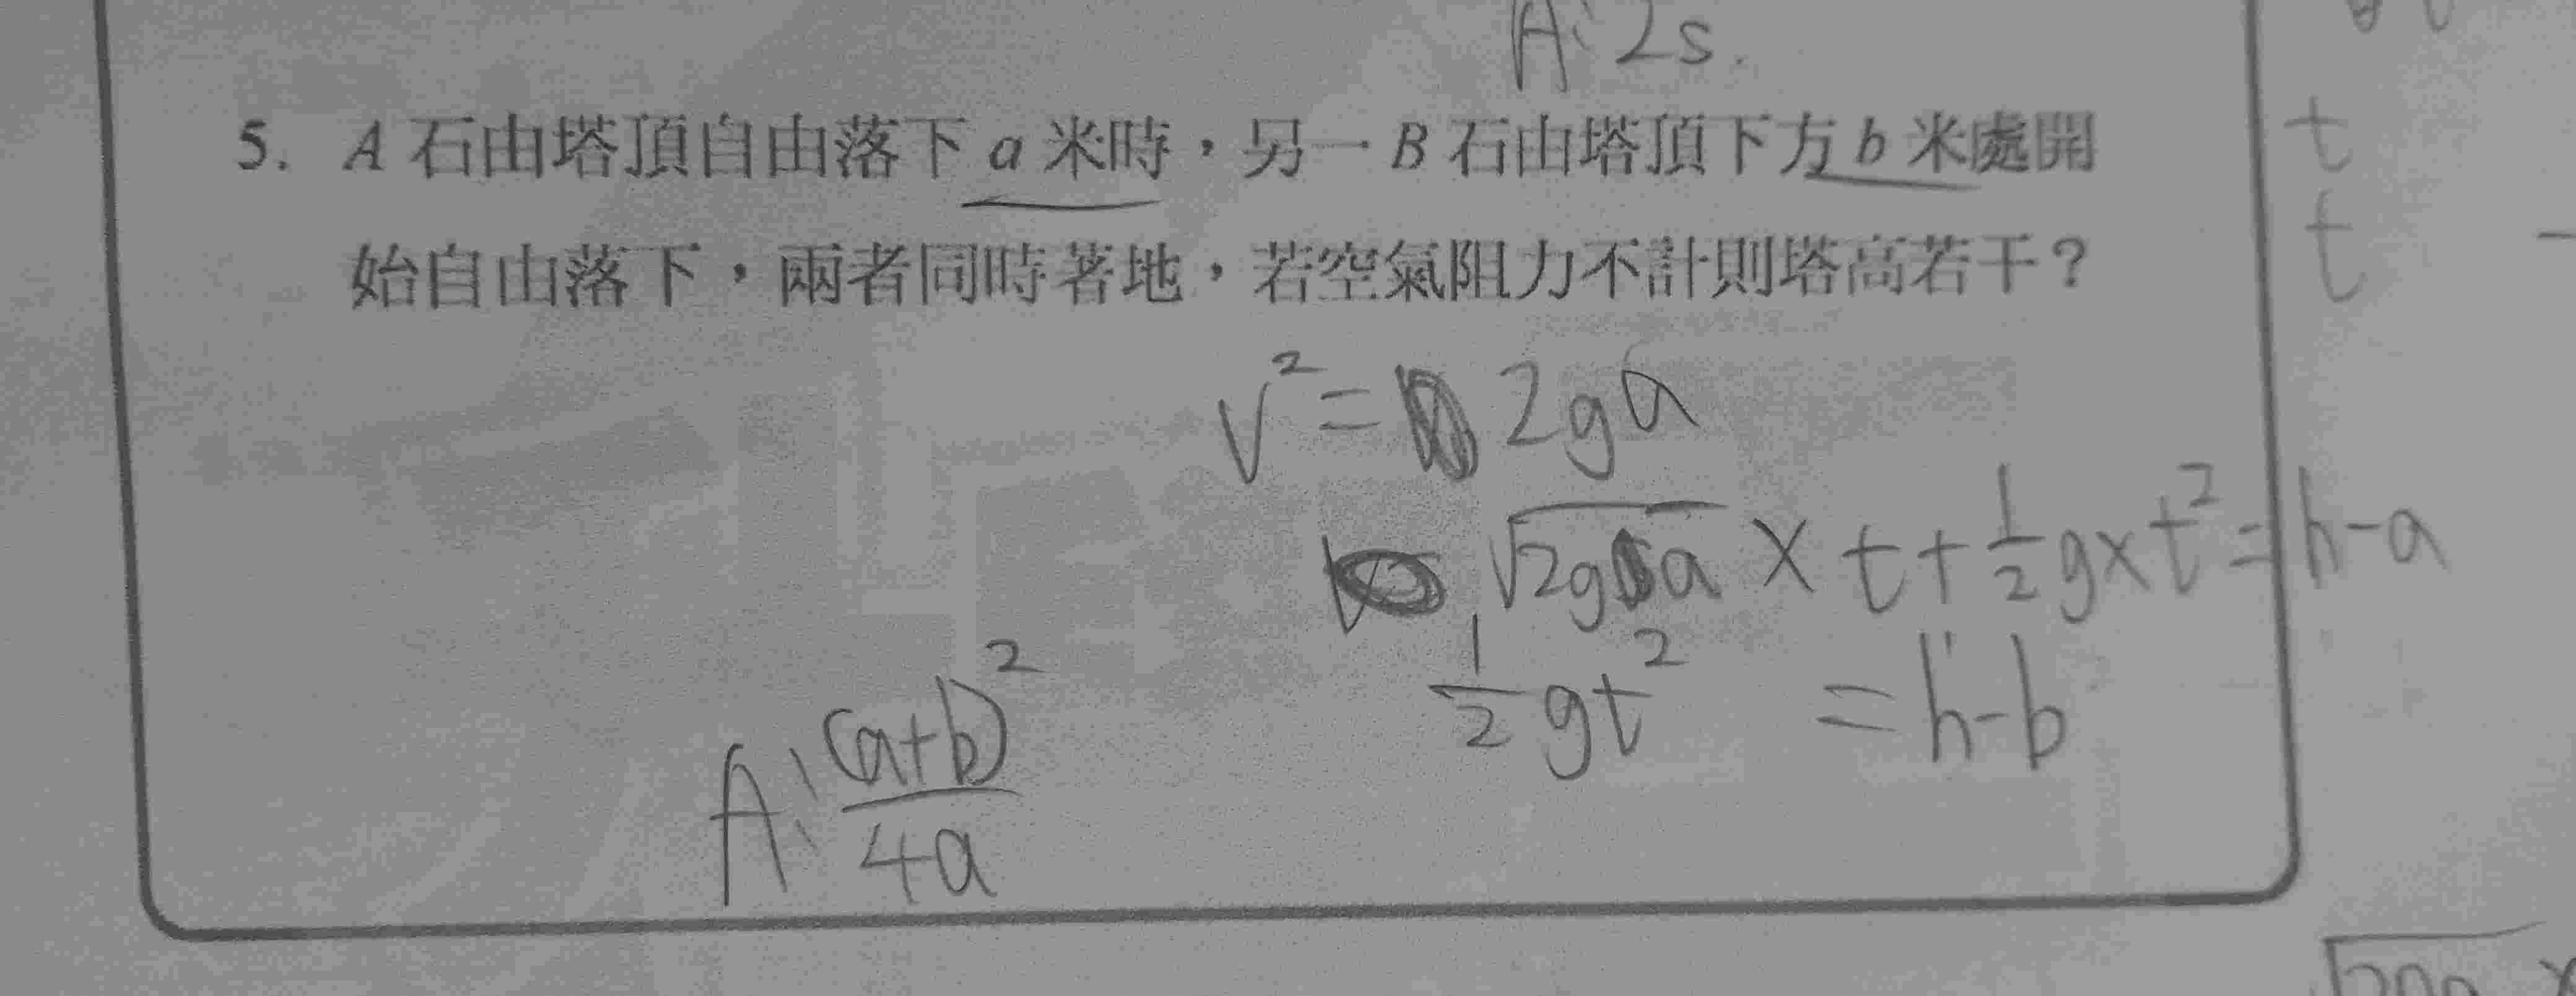 A: 2s.
5. A 石由塔頂自由落下 a 米時，另一 B 石由塔頂下方 b 米處開
始自由落下，兩者同時著地，若空氣阻力不計則塔高若干？
t
t
V² = 2ga
√2ga × t + 1/2 g × t² = h - a
1/2 gt² = h - b
A: (a+b)²/4a